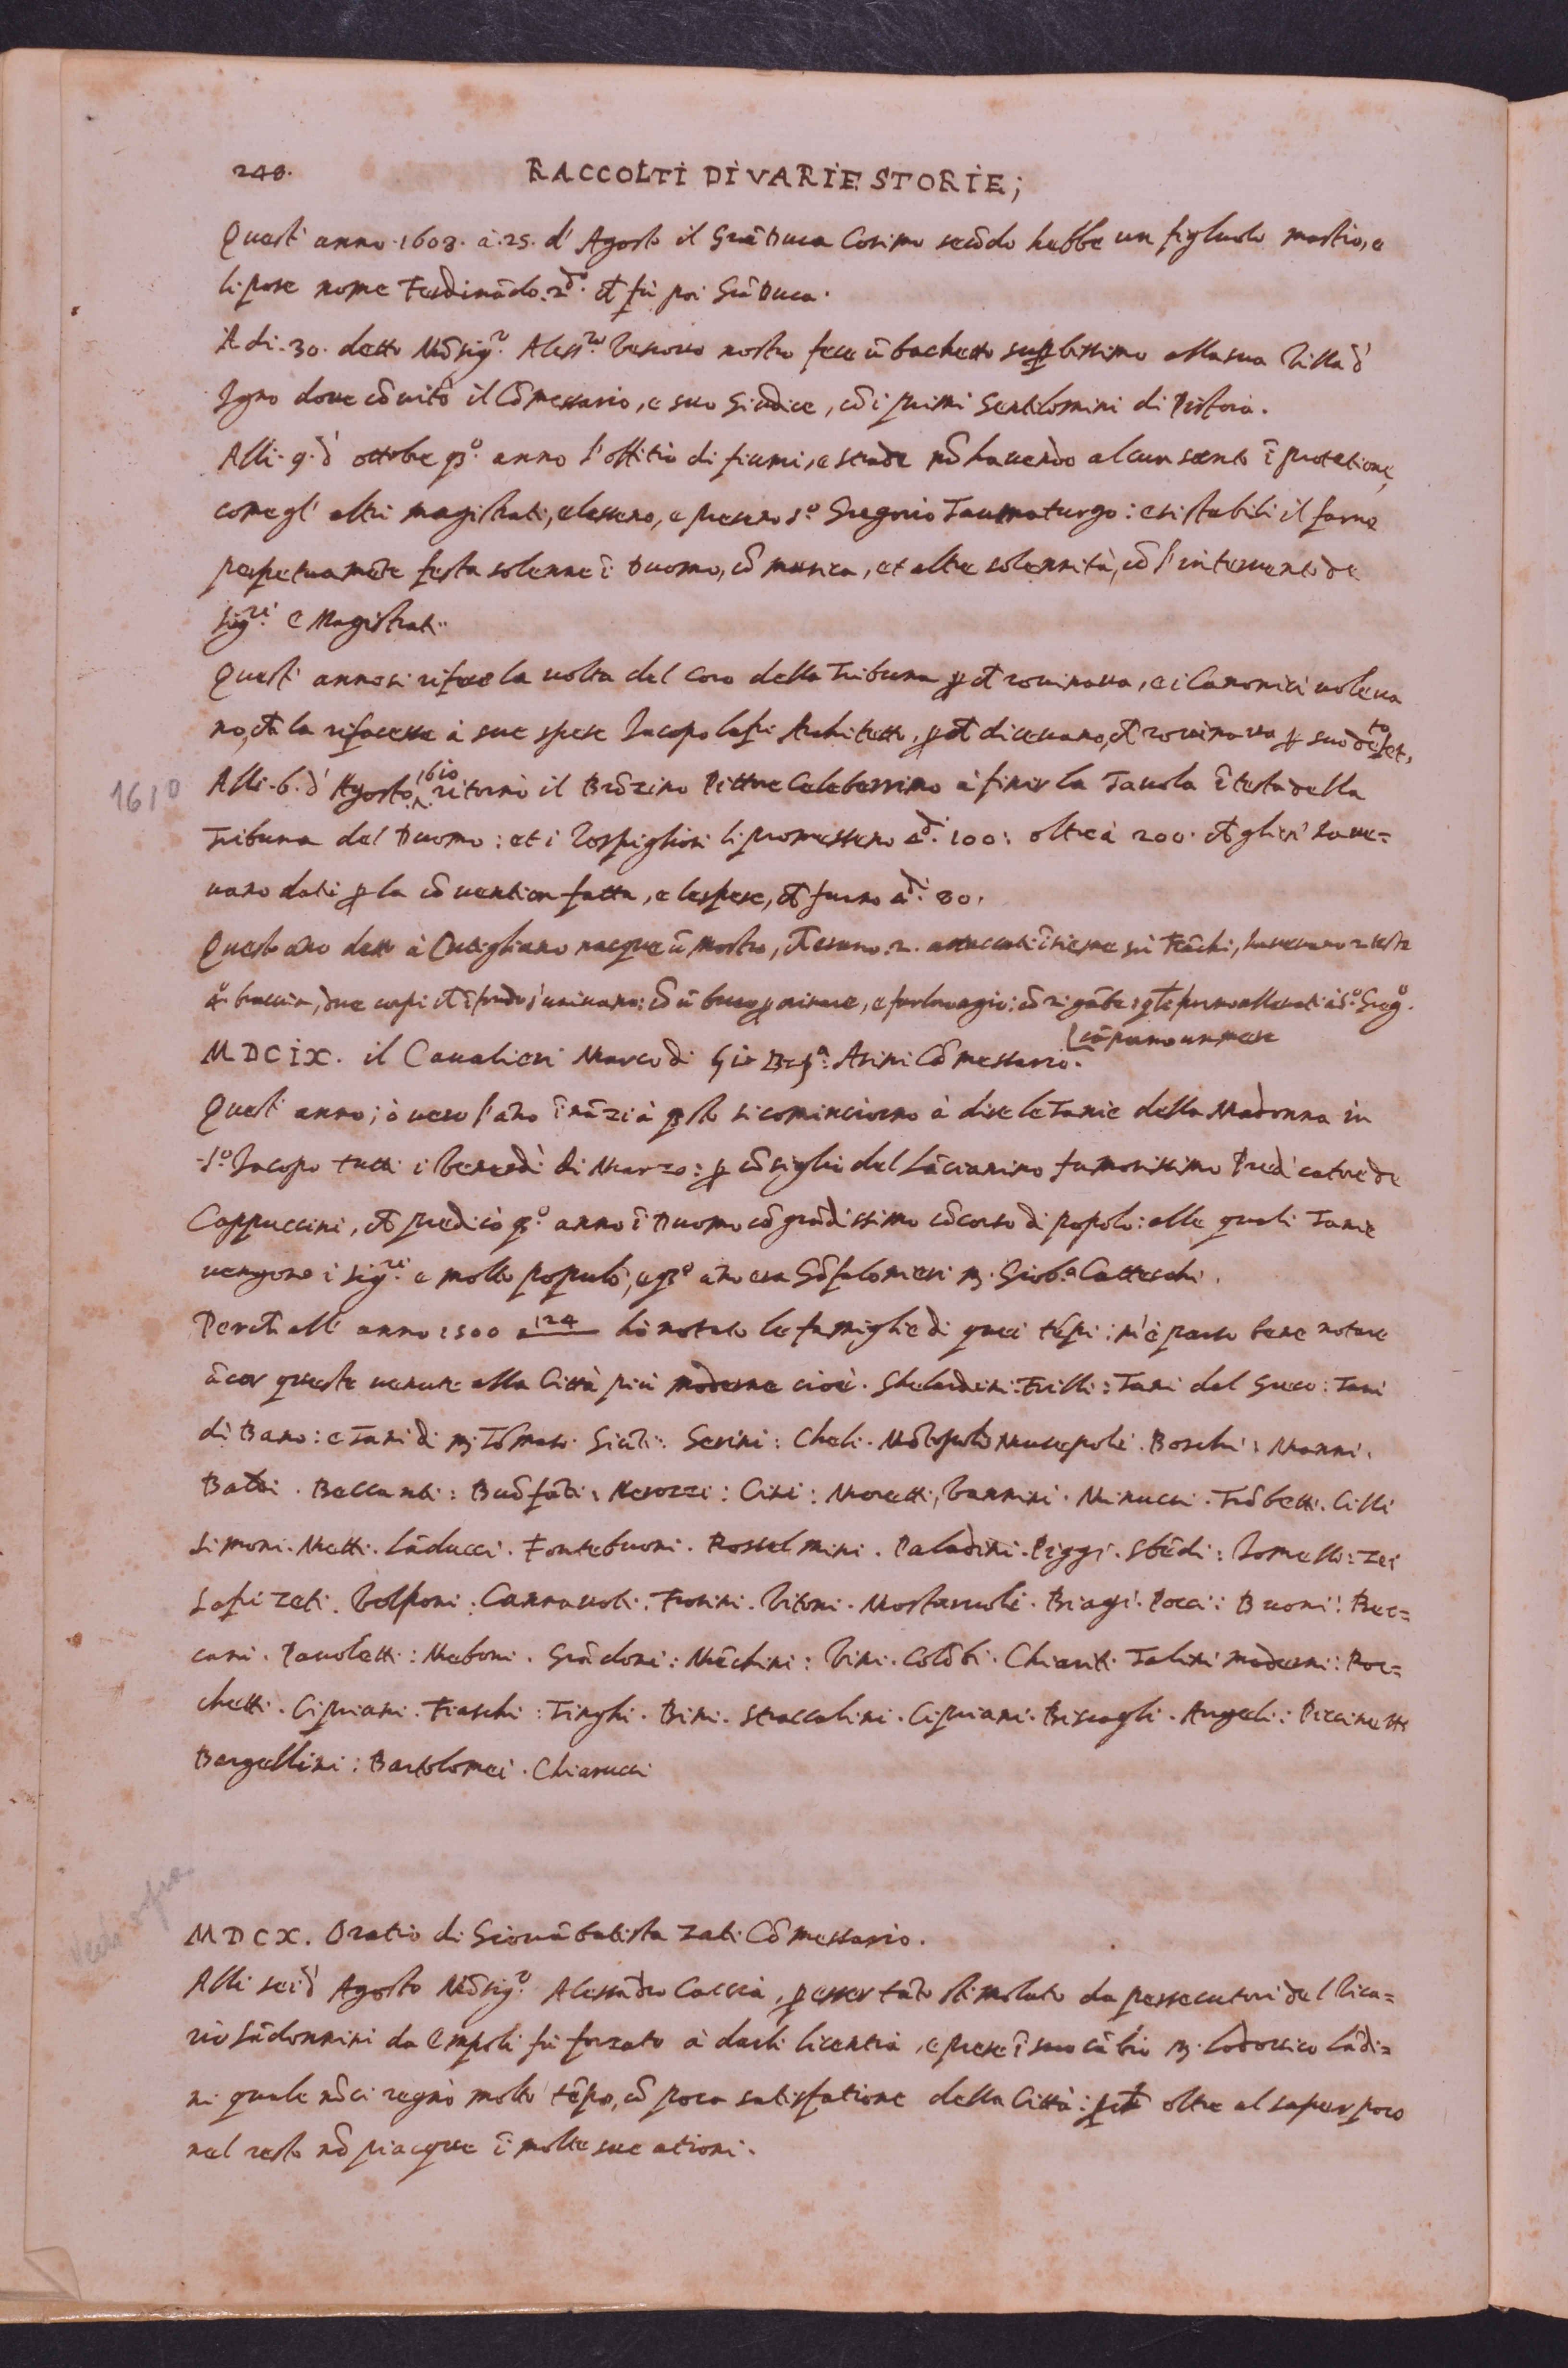 248. RACCOLTI DI VARIE STORIE;
Quest' anno .1608. à .25. d' Agosto il Grã Duca Cosimo secõdo hebbe un figliuolo mastio, e
li pose nome Ferdinãdo .2do. ch fù poi Grã Duca.
A di .30. detto Mõsigre. Alessro. Vescovo nostro fece ũ bãchetto supbissimo alla sua Villa d'
Igno dove cõvitò il Cõmessario, e suo Giudice, cõ i primi Gentilomini di Pistoia.
Alli .9. d' ottobre qo. anno l'offitio di fiumi, e strade nõ havendo alcun santo ĩ protetione,
come gl' altri magistrati, elessero, e presero So. Gregorio Taumaturgo: e si stabilì il farne
perpetuamẽte festa solenne ĩ Duomo, cõ musica, et altre solennità, cõ l'intervento de
sigri. e Magistrati.
Quest' anno si rifece la volta del Coro della Tribuna p ch rovinava, e i Canonici voleva
no, ch la rifacesse à sue spese Iacopo Lafri Architetto, p ch dicevano, ch rovinava p suo defetto,
1610
Alli .6. d' Agosto 1610 ritornò il Brõzino Pittore Celeberrimo à finir la Tavola ĩ testa della
Tribuna del Duomo: et i Rospigliosi li promessero di. 100: oltre à 200. ch glieri have=
vano dati p la cõvention fatta, e le spese, ch furno di. 80.
Questo ãno detto à Cutigliano nacque ũ mostro, ch erano .2. attaccati ĩsieme nei fiãchi, havevano 2 teste
4o. braccia, due corpi ch ĩ fondo s'univano: cõ ũ buco p orinare, e far loro agio: cõ 2 gãbe: qte furno allevati à So. Grego.
cãporno un mese
MDCIX. il Cavalieri Marco di Gio Bata. Asini Cõmessario.
Quest' anno; ò vero l'ãno ĩnãzi à qsto si cominciorno à dire le Tanie della Madonna in
So. Iacopo tutti i Venerdì di Marzo: p cõsiglio del Lãcianino famosissimo Predicatore de
Cappuccini, ch predicò qo. anno ĩ Duomo cõ grãdissimo cõcorso di popolo: alle quali Tanie
vengono i sigri. e molto populo; e qo ãno era Gõfalonieri M. Giob.a Catteschi.
Perch all' anno 1500 a 124 hò notato le famiglie di quei tẽpi: m'è parso bene notare
ãcor queste venute alla Città più moderne cioè. Ghelardini: Frilli: Tani del Greco: Tani
di Bano: e Tani di M. Tõmaso. Giãti: Serini: Cheli. Mõtopoli Musepoli. Boschi: Manni.
Baldi. Beccanti: Buõfãti: Merozzi: Cini: Moretti, Vannini. Minucci. Trõbetti. Cilli
Simoni. Metti. Lãducci. Fontebuoni. Rosselmini. Paladini. Piggi. Sbẽdi: Romello: Zei
Lafri Zeti. Volponi. Cannavoli: Frosini. Vitoni. Mostarvoli. Biagi. Pacci: Buoni: Bec=
cani. Pavoletti: Maboni. Grãdoni: Mẽchini: Vini. Colõbi. Chiariti. Talini moderni: Roc=
chetti. Cipriani. Fiaschi: Tinghi. Bini. Straccalini. Cipriani. Biscagli. Angeli: Piccinetti
Bargellini: Bartolomei. Chiarucci
MDCX. Oratio di Giovãbatista Zati Cõmessario.
Alli sei d' Agosto Mõsigre. Alessãdro Caccia, p esser tãto stimolato da persecutori del Vica=
rio Sãdonnini da Empoli fù forzato à darli licentia, e prese ĩ suo cãbio M. Lodovico Lãdi=
ni quale nõ ci regnò molto tẽpo, cõ poca satisfatione della Città: pch oltre al saper poco
nel resto nõ piacque ĩ molte sue ationi.